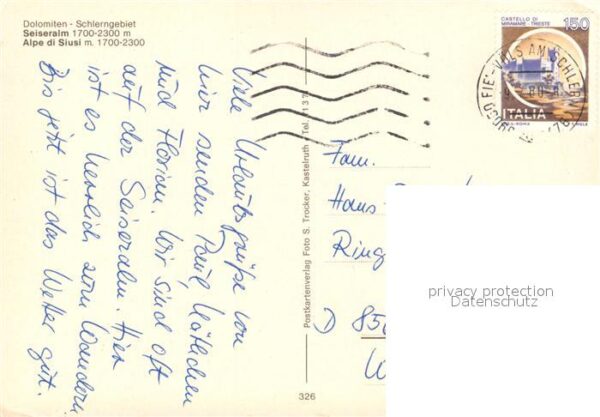 Dolomiten - Schlerngebiet
Seiseralm 1700-2300 m
Alpe di Siusi m. 1700-2300
Viele Urlaubsgrüße von
hier senden Paul, Kätchen
und Florian. Wir sind oft
auf der Seiseralm. Hier
ist es herrlich zum Wandern.
Bis jetzt ist das Wetter gut.
Postkartenverlag Foto S. Trocker, Kastelruth Tel.
326
CASTELLO DI
MIRAMARE - TRIESTE
150
ITALIA
FIE'-VÖLS AM SCHLERN
Fam.
Hans-
Ring
D 850
privacy protection
Datenschutz